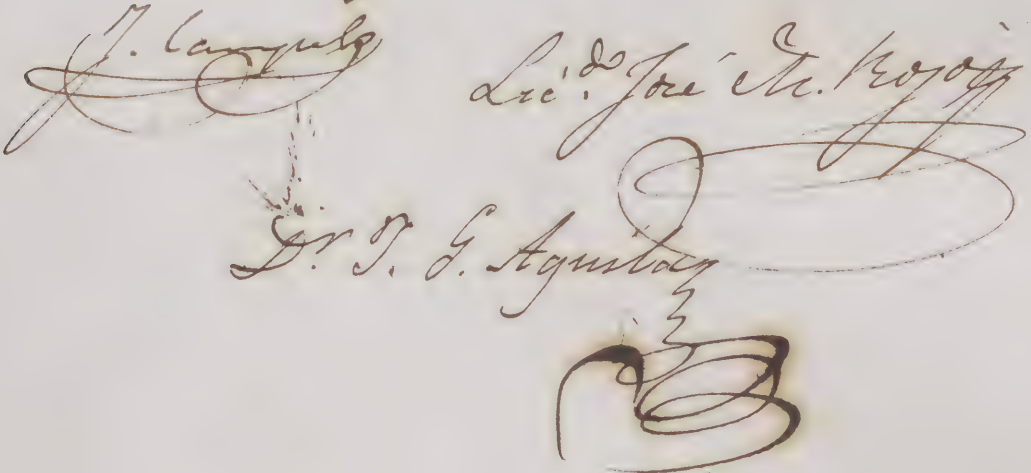 J. Campulz
Lic.do José M. Rojas
Dr. J. G. Aguilar